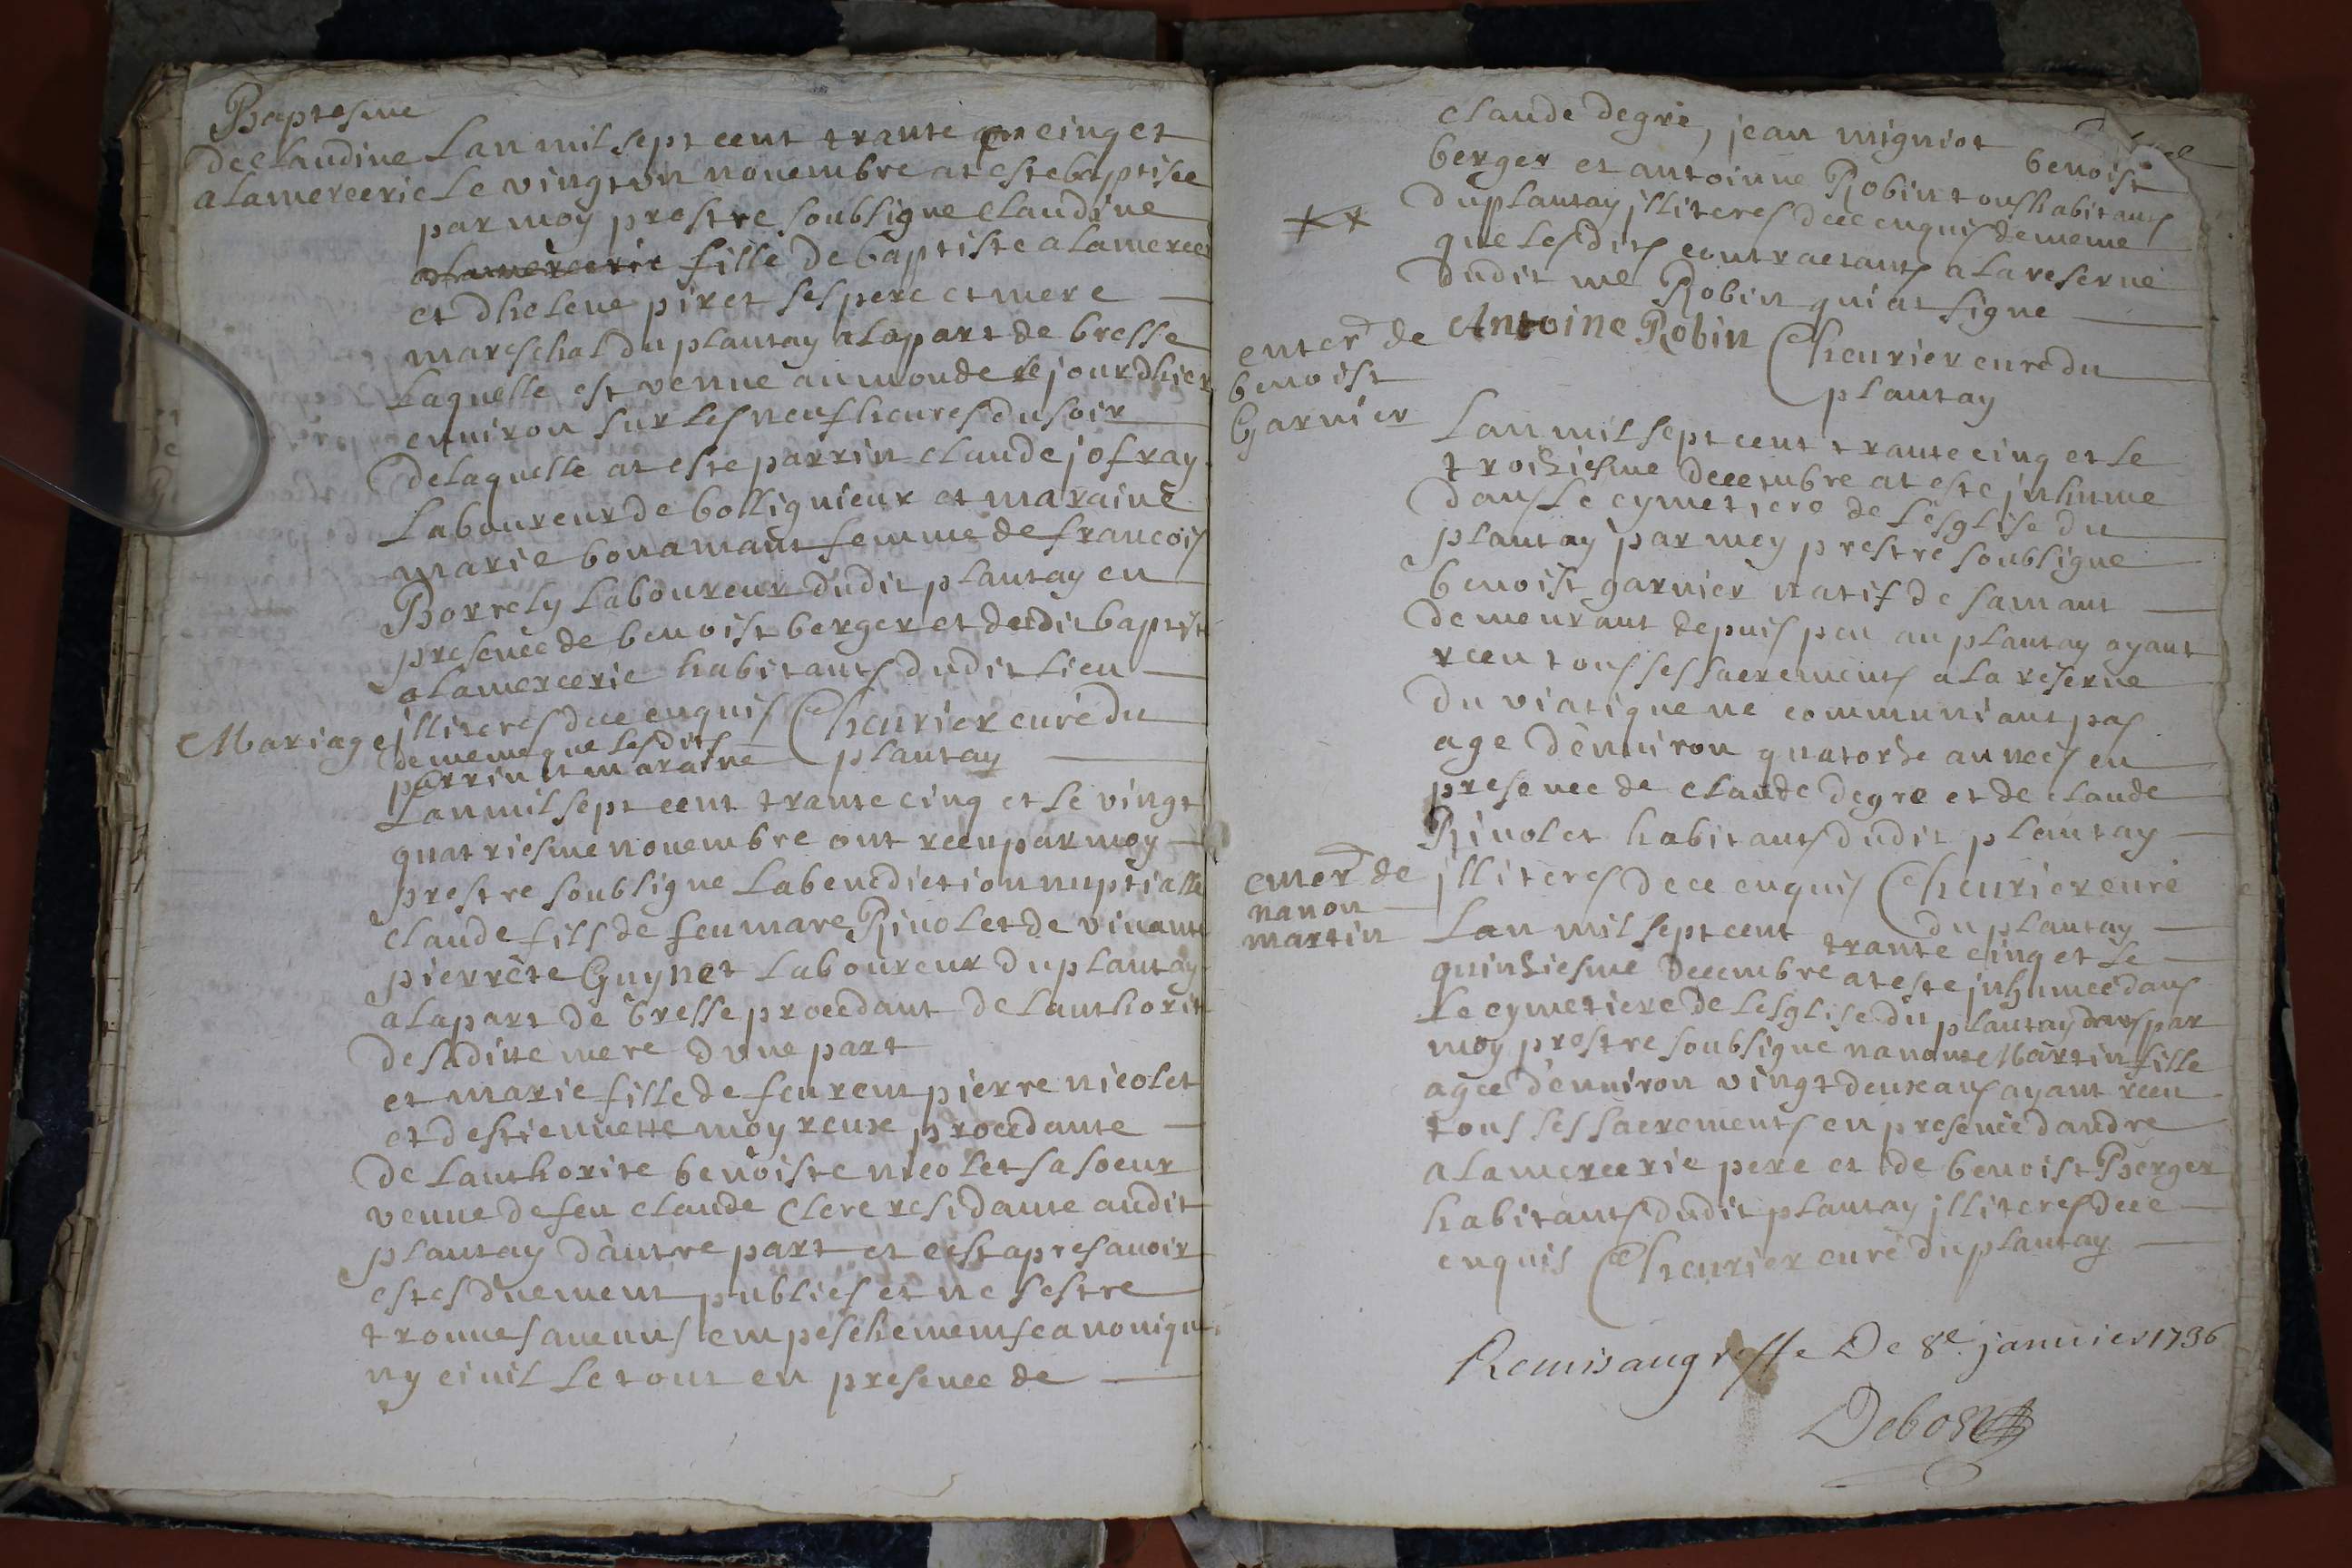 Baptesme
de claudine
alamercerie
Lan mil sept cent trante cinq et
le vingt un nouembre at este baptisee
par moy prestre soubsigne claudine
alamercerie fille de baptiste alamercer
et dhelene piret ses pere et mere
mareschal du plantay a la part de bresse
laquelle est venue au monde le jour dhier
enuiron sur les neuf heures du soir
de laquelle at este parrin claude jofray
laboureur de bollignieux et maraine
marie bonamant femme de francois
Borrely laboureur dudit plantay en
presence de benoist berger et dudit baptist
alamercerie habitants dudit lieu
illiteres de ce enquis Cheurier curé du
de meme que lesdits plantay
parrin et maraine
Mariage
Lan mil sept cent trante cinq et le vingt
quatriesme nouembre ont receu par moy
prestre soubsigne la benediction nuptialle
claude fils de feu marc Riuolet de viuante
pierrete Guynet laboureur du plantay
a la part de bresse procedant de lauthorit
de saditte mere dune part
et marie fille de feu rem pierre nicolet
et destiennette moyreux procedante
de lauthorite benoiste nicolet sa soeur
veuue de feu claude Clerc residante audit
plantay dautre part et cest apres auoir
estes duement publies et ne sestre
trouues aucuns empeschements canonique
ny ciuil le tout en presence de
claude degré, jean migniot benoist
berger et antoinne Robin tous habitants
du plantay illiteres de ce enquis de meme
que lesdits contractants a la reserue
dudit me Robin qui at signe
Antoine Robin Cheurier curé du
plantay
enterd de
benoist
Garnier
Lan mil sept cent trante cinq et le
troiziesme decembre at este inhume
dans le cymetiere de lesglise du
plantay par moy prestre soubsigne
benoist garnier natif de samant
demeurant depuis peu au plantay ayant
receu tous ses sacrements a la reserue
du viatique ne communiant pas
age denuiron quatorze annees en
presence de claude degre et de claude
Riuolet habitants dudit plantay
illiteres de ce enquis Cheurier curé
du plantay
enterd de
nanon
martin
Lan mil sept cent trante cinq et le
quinziesme decembre at este inhumeé dans
le cymetiere de lesglise du plantay dans par
moy prestre soubsigne nanone Martin fille
agee denuiron vingt deux ans ayant receu
tous ses sacrements en presence dandre
alamercerie pere et de benoist Berger
habitants dudit plantay illiteres de ce
enquis Cheurier curé du plantay
Remis au greffe De 8e januier 1736
Debost